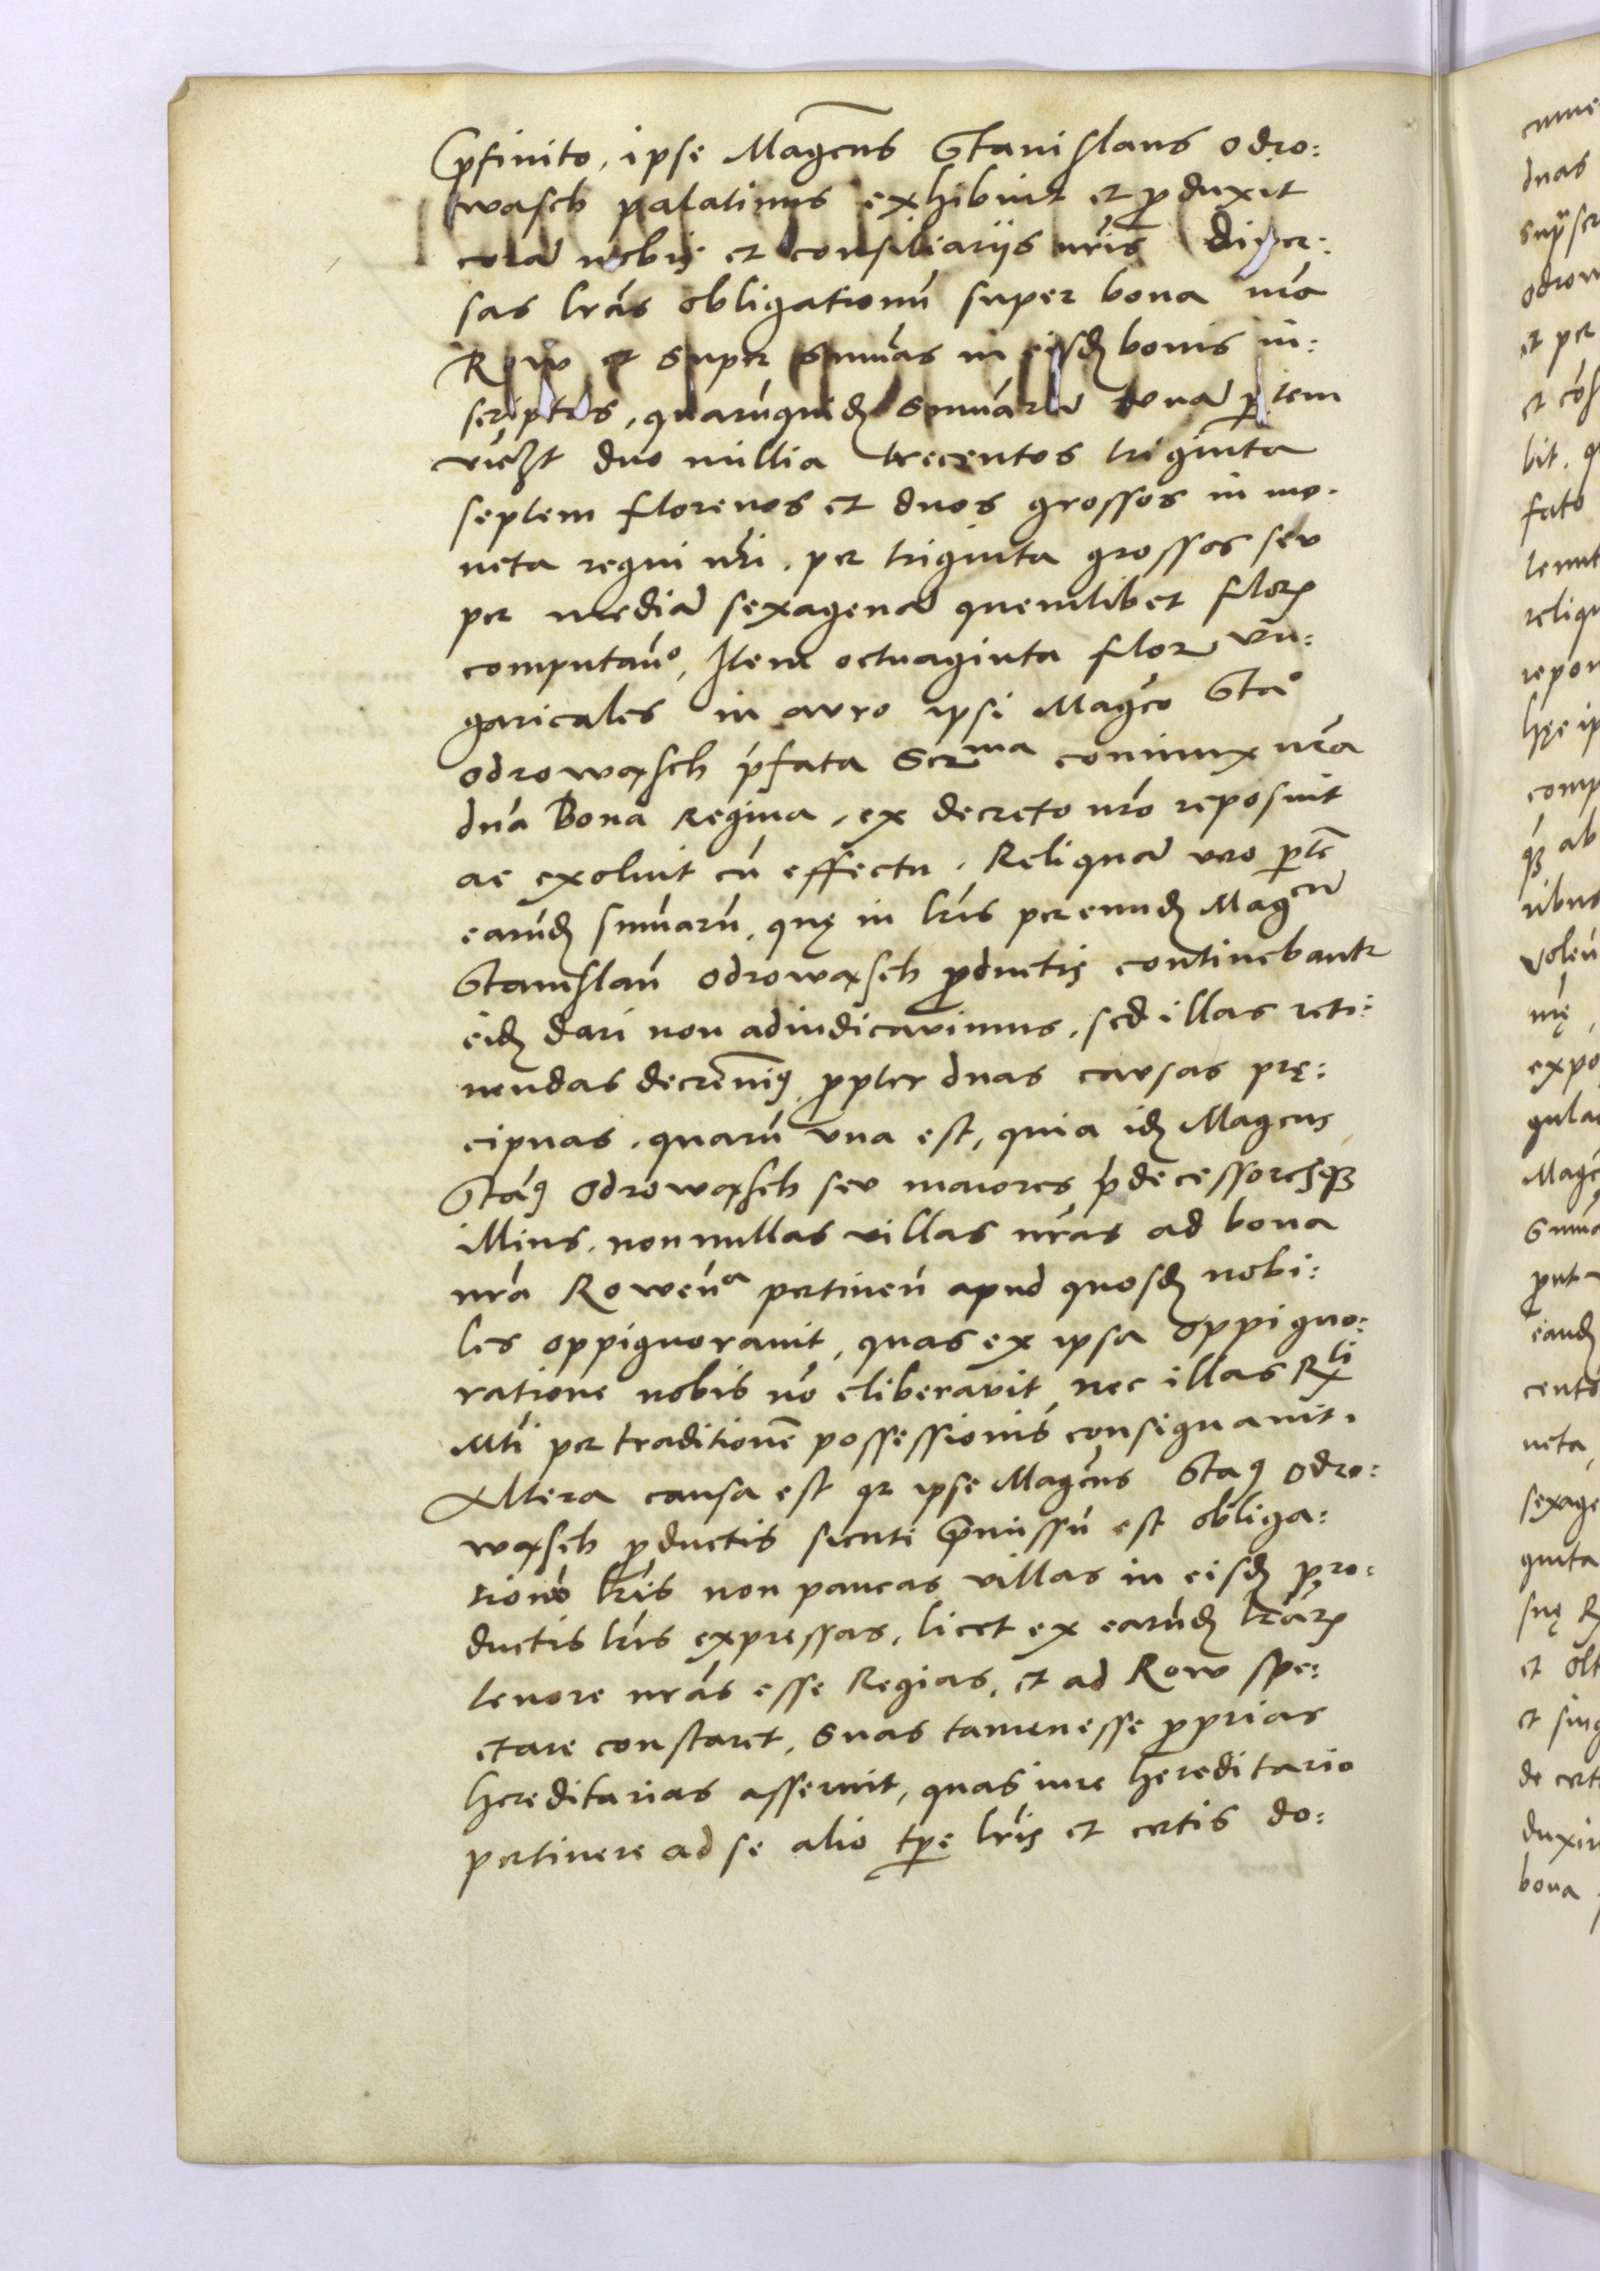 p̄finito, ipse Magcus Stanislaus Odro:
wasch palatinus exhibuit et produxit
corā nobis et consiliariis nr̄is Diver:
sas lrās obligationū super bona nrā
Row et super summas in eisdē bonis in:
scriptas, quarūquidē summarū bonā ptem
videlzt duo millia trecentos triginta
septem florenos et duos grossos in mo.
neta regni nri, per triginta grossos seu
per mediā sexagenā quemlibet flor
computan̄o, Item octuaginta flor Vn:
garicales in auro ipsi Magco Stao
Odrowasch pr̄fata Serma coniunx nrā
dnā Bona Regina, ex decreto nrō reposuit
ac exoluit cū effectu. Reliquā vero ptē
earūdē summarū, quę in lris per eundē Magcū
Stanislaū Odrowasch productis continebantr
eidē dari non adiudicavimus, sed illas reti:
nendas decrevimꝰ propter duas causas prę:
cipuas, quarū vna est, quia idē Magcus
Stāꝰ Odrowasch seu maiores pr̄decessoresqꝫ
illius, nonnullas villas nrās ad bona
nrā Rowen̄a pertineñ apud quosdē nobi:
les oppignoravit, quas ex ipsa oppigno:
ratione nobis nō eliberavit, nec illas Rli
Mti per traditionē possessionis consignavit.
Altera causa est qr ipse Magcus Staꝰ Odro:
wasch productis sicuti p̄missū est obliga:
tionū lris non paucas villas in eisdē pro:
ductis lris expressas, licet ex earūdē lrarū
tenore nrās esse Regias, et ad Row spe:
ctare constaret, suas tamen esse proprias
hereditarias asseruit, quas iure hereditario
pertinere ad se alio tpe lris et certis do: